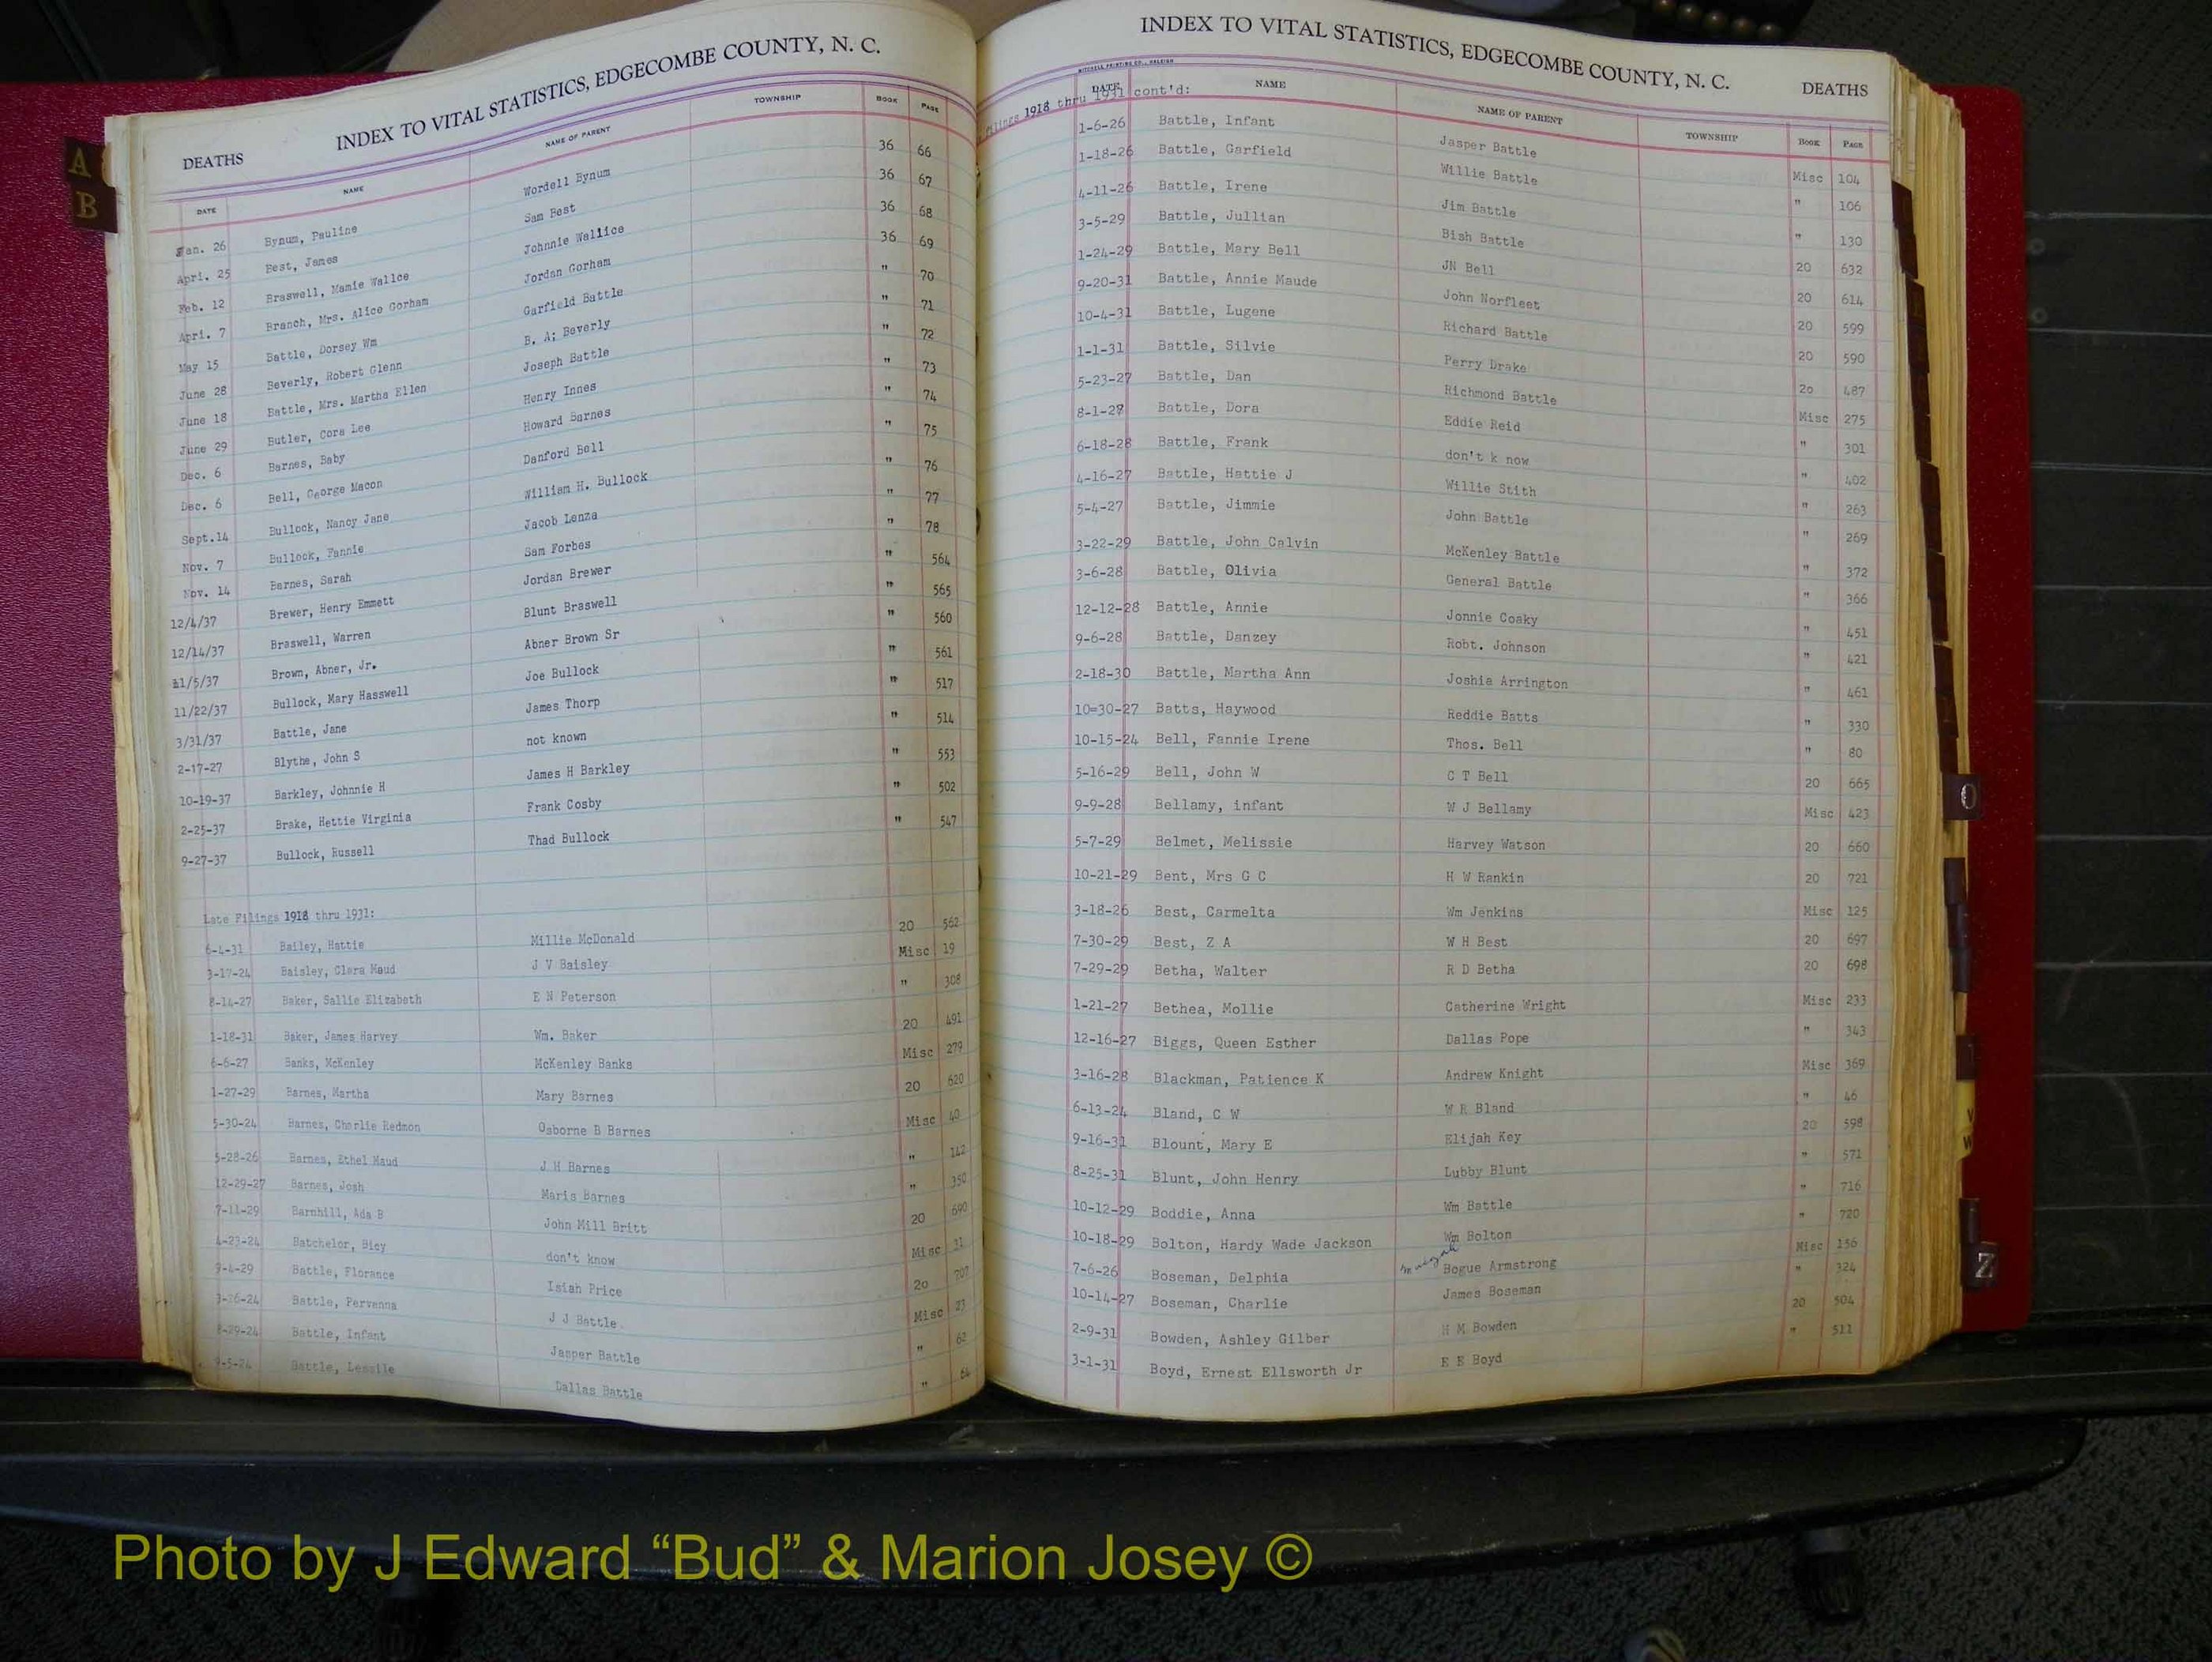 A
B
INDEX TO VITAL STATISTICS, EDGECOMBE COUNTY, N. C.
DEATHS
DATE NAME NAME OF PARENT TOWNSHIP BOOK PAGE
Jan. 26 Bynum, Pauline Wordell Bynum 36 66
Apri. 25 Best, James Sam Best 36 67
Feb. 12 Braswell, Mamie Wallce Johnnie Wallice 36 68
Apri. 7 Branch, Mrs. Alice Gorham Jordan Gorham 36 69
May 15 Battle, Dorsey Wm Garfield Battle " 70
June 28 Beverly, Robert Glenn B. A; Beverly " 71
June 18 Battle, Mrs. Martha Ellen Joseph Battle " 72
June 29 Butler, Cora Lee Henry Innes " 73
Dec. 6 Barnes, Baby Howard Barnes " 74
Dec. 6 Bell, George Macon Danford Bell " 75
Sept.14 Bullock, Nancy Jane William H. Bullock " 76
Nov. 7 Bullock, Fannie Jacob Lenza " 77
Nov. 14 Barnes, Sarah Sam Forbes " 78
12/4/37 Brewer, Henry Emmett Jordan Brewer " 564
12/14/37 Braswell, Warren Blunt Braswell " 565
11/5/37 Brown, Abner, Jr. Abner Brown Sr " 560
11/22/37 Bullock, Mary Hasswell Joe Bullock " 561
3/31/37 Battle, Jane James Thorp " 517
2-17-27 Blythe, John S not known " 514
10-19-37 Barkley, Johnnie H James H Barkley " 553
2-25-37 Brake, Hettie Virginia Frank Cosby " 502
9-27-37 Bullock, Russell Thad Bullock " 547
Late Filings 1918 thru 1931:
6-4-31 Bailey, Hattie Millie McDonald 20 562
3-17-24 Baisley, Clara Maud J V Baisley Misc 19
8-14-27 Baker, Sallie Elizabeth E N Peterson " 308
1-18-31 Baker, James Harvey Wm. Baker 20 491
6-6-27 Banks, McKenley McKenley Banks Misc 279
1-27-29 Barnes, Martha Mary Barnes 20 620
5-30-24 Barnes, Charlie Redmon Osborne B Barnes Misc 40
5-28-26 Barnes, Ethel Maud J H Barnes " 142
12-29-27 Barnes, Josh Maris Barnes " 350
7-11-29 Barnhill, Ada B John Mill Britt 20 690
4-23-24 Batchelor, Bicy don't know Misc 31
9-4-29 Battle, Florance Isiah Price 20 707
3-26-24 Battle, Pervenna J J Battle Misc 23
8-29-24 Battle, Infant Jasper Battle " 62
9-5-24 Battle, Dallas Battle " 64
INDEX TO VITAL STATISTICS, EDGECOMBE COUNTY, N. C.
DEATHS
MITCHELL PRINTING CO., RALEIGH
DATE NAME NAME OF PARENT TOWNSHIP BOOK PAGE
filings 1918 thru 1931 cont'd:
1-6-26 Battle, Infant Jasper Battle Misc 104
1-18-26 Battle, Garfield Willie Battle " 106
4-11-26 Battle, Irene Jim Battle " 130
3-5-29 Battle, Jullian Bish Battle 20 632
1-24-29 Battle, Mary Bell JN Bell 20 614
9-20-31 Battle, Annie Maude John Norfleet 20 599
10-4-31 Battle, Lugene Richard Battle 20 590
1-1-31 Battle, Silvie Perry Drake 20 487
5-23-27 Battle, Dan Richmond Battle Misc 275
8-1-27 Battle, Dora Eddie Reid " 301
6-18-28 Battle, Frank don't k now " 402
4-16-27 Battle, Hattie J Willie Stith " 263
5-4-27 Battle, Jimmie John Battle " 269
3-22-29 Battle, John Calvin McKenley Battle " 372
3-6-28 Battle, Olivia General Battle " 366
12-12-28 Battle, Annie Jonnie Coaky " 451
9-6-28 Battle, Danzey Robt. Johnson " 421
2-18-30 Battle, Martha Ann Joshie Arrington " 461
10=30-27 Batts, Haywood Reddie Batts " 330
10-15-24 Bell, Fannie Irene Thos. Bell " 80
5-16-29 Bell, John W C T Bell 20 665
9-9-28 Bellamy, infant W J Bellamy Misc 423
5-7-29 Belmet, Melissie Harvey Watson 20 660
10-21-29 Bent, Mrs G C H W Rankin 20 721
3-18-26 Best, Carmelta Wm Jenkins Misc 125
7-30-29 Best, Z A W H Best 20 697
7-29-29 Betha, Walter R D Betha 20 698
1-21-27 Bethea, Mollie Catherine Wright Misc 233
12-16-27 Biggs, Queen Esther Dallas Pope " 343
3-16-28 Blackman, Patience K Andrew Knight Misc 369
6-13-24 Bland, C W W R Bland " 46
9-16-31 Blount, Mary E Elijah Key 20 598
8-25-31 Blunt, John Henry Lubby Blunt " 571
10-12-29 Boddie, Anna Wm Battle " 716
10-18-29 Bolton, Hardy Wade Jackson Wm Bolton " 720
7-6-26 Boseman, Delphia Bogue Armstrong Misc 156
10-14-27 Boseman, Charlie James Boseman " 324
2-9-31 Bowden, Ashley Gilber H M Bowden 20 504
3-1-31 Boyd, Ernest Ellsworth Jr E E Boyd " 511
O
V
W
Z
Photo by J Edward “Bud” & Marion Josey ©